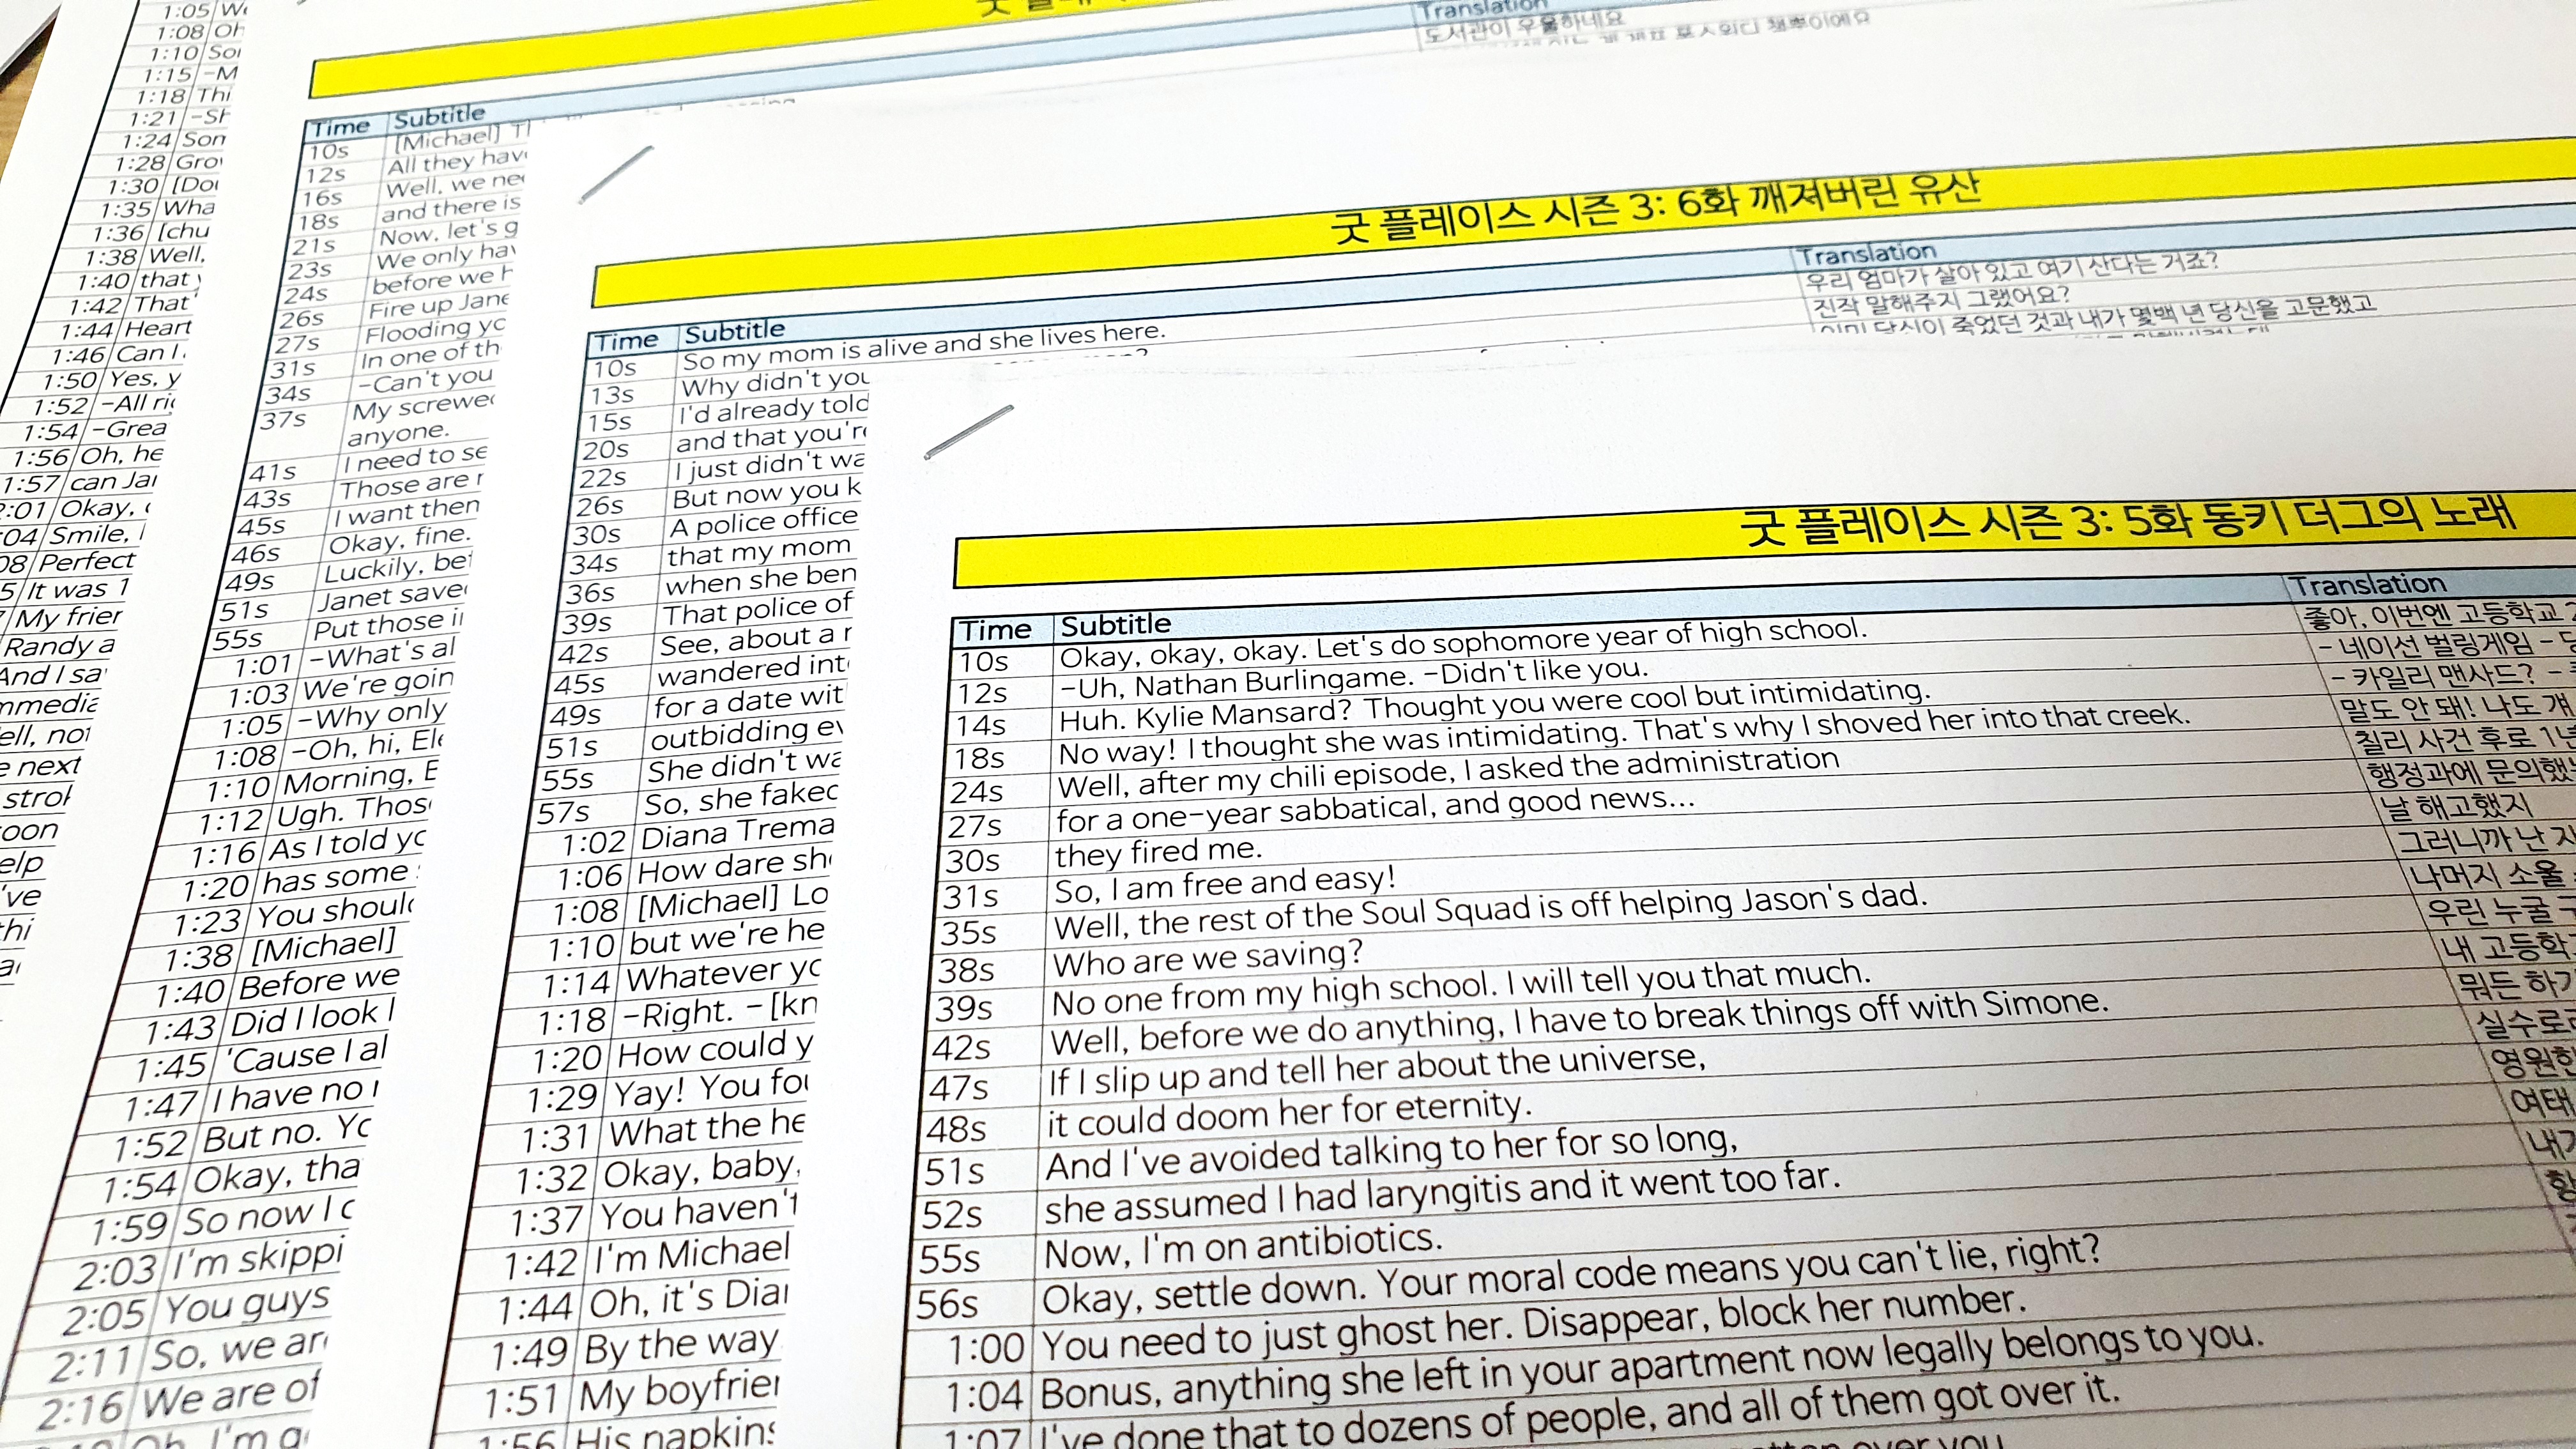 1:05 We
1:08 Oh
1:10 Sor
1:15 -M
1:18 Thi
1:21 -Sh
1:24 Son
1:28 Gro
1:30 [Doo
1:35 Wha
1:36 [chu
1:38 Well,
1:40 that
1:42 That'
1:44 Heart
1:46 Can I
1:50 Yes, y
1:52 -All ri
1:54 -Grea
1:56 Oh, he
1:57 can Ja
2:01 Okay,
04 Smile,
08 Perfect
5 It was 1
My frier
Randy a
And I sa
mmedia
ell, not
e next
strok
oon
elp
've
thi
Translation
도서관이 우울하네요
Time Subtitle
10s [Michael] T
12s All they hav
16s Well, we ne
18s and there is
21s Now, let's g
23s We only ha
24s before we h
26s Fire up Jane
27s Flooding yo
31s In one of th
34s -Can't you
37s My screwe
anyone.
41s I need to se
43s Those are r
45s I want then
46s Okay, fine.
49s Luckily, be
51s Janet save
55s Put those i
1:01 -What's al
1:03 We're goin
1:05 -Why only
1:08 -Oh, hi, Ele
1:10 Morning, E
1:12 Ugh. Thos
1:16 As I told yo
1:20 has some
1:23 You should
1:38 [Michael]
1:40 Before we
1:43 Did I look l
1:45 'Cause I al
1:47 I have no r
1:52 But no. Yo
1:54 Okay, tha
1:59 So now I c
2:03 I'm skippi
2:05 You guys
2:11 So, we are
2:16 We are of
Oh, I'm g
굿 플레이스 시즌 3: 6화 깨져버린 유산
Time Subtitle Translation
10s So my mom is alive and she lives here. 우리 엄마가 살아 있고 여기 산다는 거죠?
13s Why didn't you 진작 말해주지 그랬어요?
15s I'd already told 이미 당신이 죽었던 것과 내가 몇백 년 당신을 고문했고
20s and that you're
22s I just didn't wa
26s But now you k
30s A police office
34s that my mom
36s when she ben
39s That police of
42s See, about a r
45s wandered int
49s for a date wit
51s outbidding ev
55s She didn't wa
57s So, she faked
1:02 Diana Trema
1:06 How dare sh
1:08 [Michael] Lo
1:10 but we're he
1:14 Whatever yo
1:18 -Right. -[kn
1:20 How could y
1:29 Yay! You fou
1:31 What the he
1:32 Okay, baby,
1:37 You haven't
1:42 I'm Michael
1:44 Oh, it's Dia
1:49 By the way
1:51 My boyfrier
1:56 His napkins
굿 플레이스 시즌 3: 5화 동키 더그의 노래
Time Subtitle Translation
10s Okay, okay, okay. Let's do sophomore year of high school. 좋아, 이번엔 고등학교 2
12s -Uh, Nathan Burlingame. -Didn't like you. - 네이선 벌링게임 -
14s Huh. Kylie Mansard? Thought you were cool but intimidating. - 카일리 맨사드? -
18s No way! I thought she was intimidating. That's why I shoved her into that creek. 말도 안 돼! 나도 걔
24s Well, after my chili episode, I asked the administration 칠리 사건 후로 1년
27s for a one-year sabbatical, and good news... 행정과에 문의했
30s they fired me. 날 해고했지
31s So, I am free and easy! 그러니까 난 자
35s Well, the rest of the Soul Squad is off helping Jason's dad. 나머지 소울
38s Who are we saving? 우린 누굴 구
39s No one from my high school. I will tell you that much. 내 고등학교
42s Well, before we do anything, I have to break things off with Simone. 뭐든 하기
47s If I slip up and tell her about the universe, 실수로라
48s it could doom her for eternity. 영원한
51s And I've avoided talking to her for so long, 여태
52s she assumed I had laryngitis and it went too far. 내가
55s Now, I'm on antibiotics. 항
56s Okay, settle down. Your moral code means you can't lie, right?
1:00 You need to just ghost her. Disappear, block her number.
1:04 Bonus, anything she left in your apartment now legally belongs to you.
1:07 I've done that to dozens of people, and all of them got over it.
over you